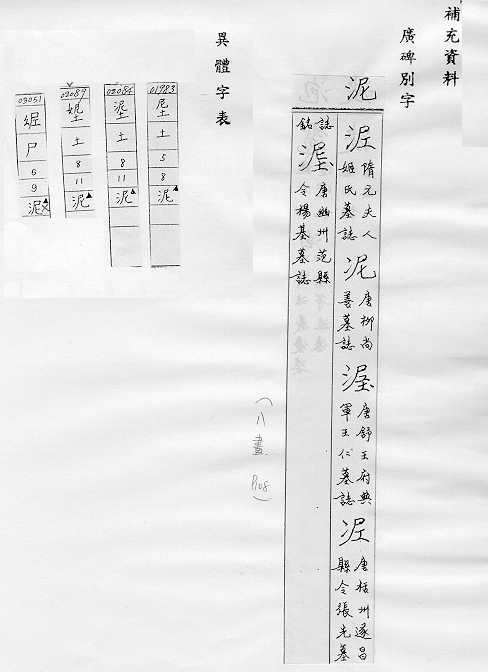 補充資料
廣碑別字
泥
隋元夫人
姬氏墓誌
泥
唐柳尚
善墓誌
唐舒王府典
軍王仁墓誌
唐括州遂昌
縣令張先墓
誌銘
唐幽州范縣
令楊基墓誌
(八畫 P108)
異體字表
01983
土
5
8
泥
02084
土
8
11
泥
02089
土
8
11
泥
03051
尸
6
9
泥